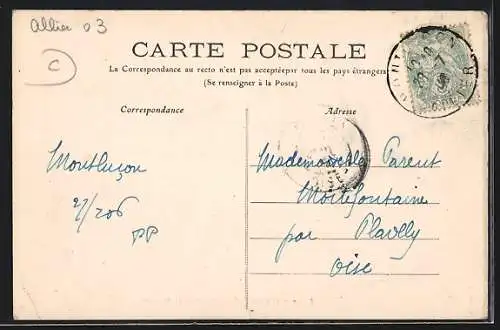 Allier 03
C
CARTE POSTALE
La Correspondance au recto n'est pas acceptéepar tous les pays étrangers
(Se renseigner à la Poste)
Correspondance
Adresse
Montluçon
27/206
PP
Mademoiselle Parent
Mortefontaine
par Plailly
Oise